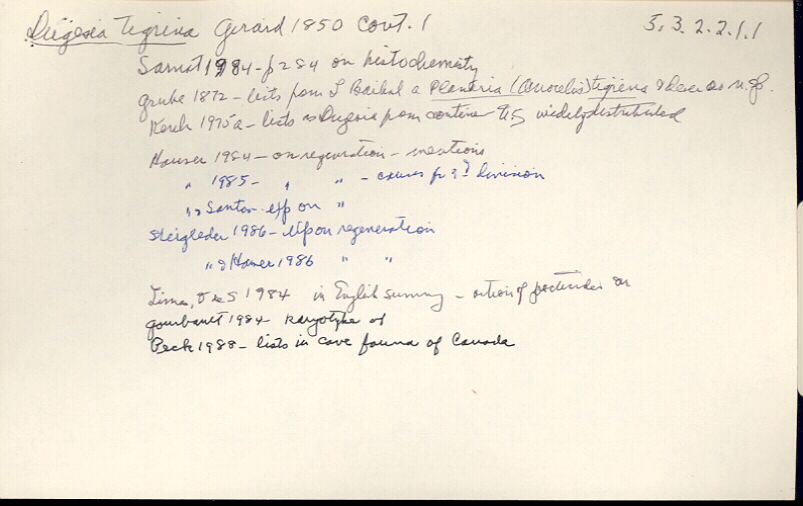 Dugesia tigrina Girard 1850 Cont. 1 5.3.2.2.1.1
1984 - p 284 on histochemistry
Grube 1872 - lists from L Baikal a Planaria (Anocelis) tigrina & desc as n. sp.
1975a - lists as Dugesia from US widely distributed
Hauser 1984 - on regeneration - mentions
" 1985 - " " - division
" & Santos exp on "
Steigleder 1986 - exp on regeneration
" & Hauser 1986 " "
Lima, & S 1984 in English summary - action of pesticides on
Gourbault 1984 - karyotype of
Peck 1988 - lists in cave fauna of Canada